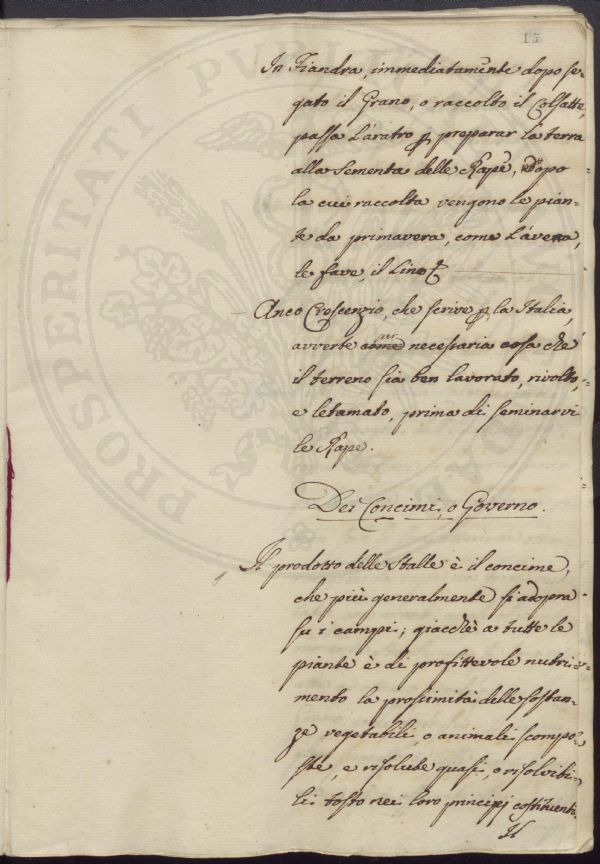 15
In Fiandra, immediatam̃ente dopo se-
gato il Grano, o raccolto il Colsatte,
passa l'aratro p preparar la terra
alla sementa delle Rape, dopo
la cui raccolta vengono le pian-
te da primavera, come l'avena,
le fave, il Lino &
Anco Crescenzio, che scrive p la Italia,
avverte necessaria cosa che
il terreno sia ben lavorato, rivolto,
e letamato, prima di seminarvi
le Rape.
Dei Concimi, o Governo.
Il prodotto delle Stalle è il concime,
che più generalmente si adopra
su i campi; giacchè a tutte le
piante è di profittevole nutri-
mento la prossimità delle sostan-
ze vegetabili, o animali scompo-
ste, e risolute quasi, o risolvibi-
li tosto nei loro principj costituenti.
Il
PROSPERITATI PUBLI